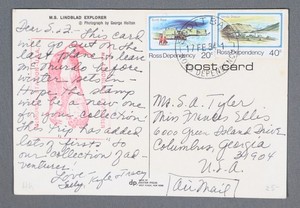 M.S. LINDBLAD EXPLORER
© Photograph by George Holton
Dear S. This card
will go out on the
last plane to leave
McMurdo before
winter sets in -
Hope the stamp
will be a new one
for your collection.
This trip has added
lots of "firsts" to
our collection of ad-
ventures.
Love
Sally, Kyle & Tracy
Ross Dependency 20c
Ross Dependency 40c
17 FE
DEPENDENCY
post card
Mr. S. A. Tyler
Miss Frances Ellis
6000 Green Island Drive
Columbus, Georgia
31904
U.S.A.
(Air Mail)
dp